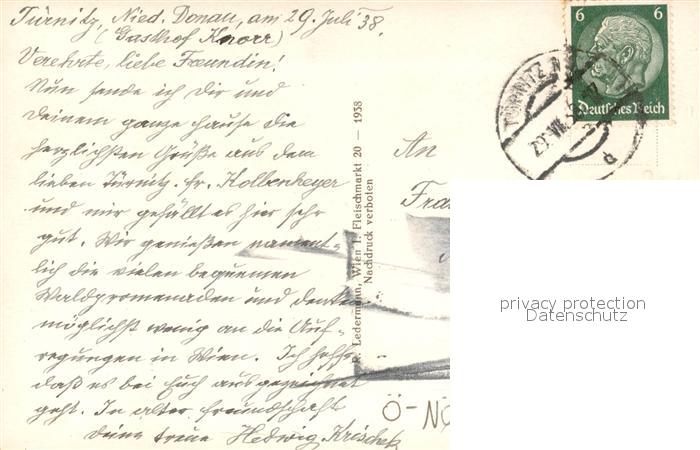 Türnitz, Nied. Donau, am 29. Juli 38.
(Gasthof Knorr)
Verehrte, liebe Freundin!
Nun sende ich Dir und
Deinem ganze Hause die
herzlichsten Grüße aus dem
lieben Türnitz. Fr. Kolbenheyer
und mir gefällt es hier sehr
gut. Wir genießen nament-
lich die vielen bequemen
Waldpromenaden und denken
möglichst wenig an die Auf-
regungen in Wien. Ich hoffe
daß es bei Euch ausgezeichnet
geht. In alter Freundschaft
deine treue Hedwig Krischek
P. Ledermann, Wien I. Fleischmarkt 20 — 1938
Nachdruck verboten
6 6
Deutsches Reich
TÜRNITZ
An
Ö-NÖ
privacy protection
Datenschutz